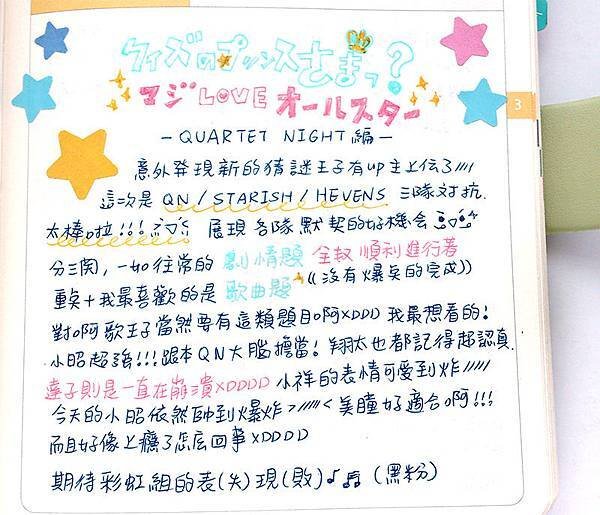 クイズのプリンスさまっ?
マジLOVEオールスター
- QUARTET NIGHT編 -
意外発現新的猜謎王子有up主上伝了////
這次是 QN / STARISH / HEVENS 三隊対抗
太棒啦!!! 展現各隊默契的好機会
分三関,一如往常的 劇情題 全数 順利進行著
重矣+我最喜歡的是 歌曲題 ((沒有爆矣的完成))
對啊歌王子當然要有這類題目啊XDDD 我最想看的!
小昭超強!!! 跟本QN大腦擔當! 翔太也都記得超認真
達子則是一直在崩潰XDDDD 小祥的表情可愛到炸/////
今天的小昭依然帥到爆炸>////< 美瞳好適合啊!!!
而且好像上癮了怎庅回事XDDDD
期待彩虹組的表(失)現(敗)♪♬ (黑粉)
3